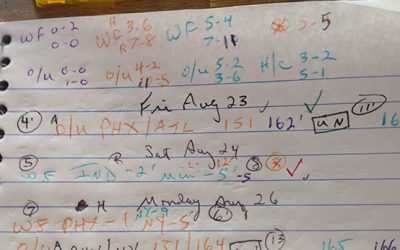 WF 0-2 H 3-6 WF 5-4 2-5
0-0 WF R 7-8 7-11
O/U 0-0 O/U 4-2 O/U 5-2 H/C 3-2
1-0 11-5 3-6 5-1
Fri Aug 23, ✓
4 A O/U PHX/ATL 151 162' UN 11' 16
R Sat Aug 24
5 WF IND -2' Min -5' -5 8 ✓
7 H Monday Aug 26
WF PHX -1' NY -5' NY-9 6'
151/164 13 165 166